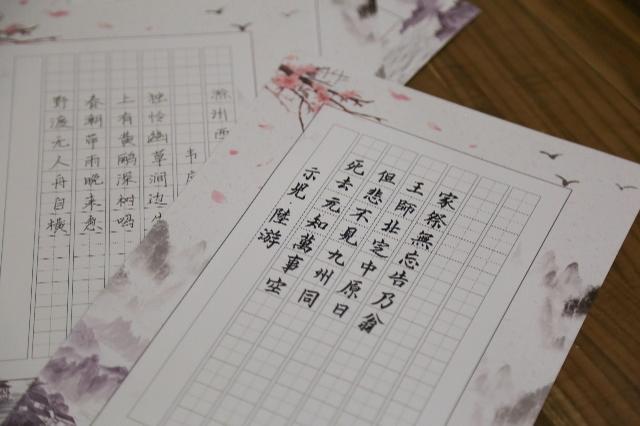 滁州西
韦
独怜幽草涧边
上有黄鹂深树鸣
春潮带雨晚来急
野渡无人舟自横
示児·陸游
死去元知萬事空
但悲不見九州同
王師北定中原日
家祭無忘告乃翁